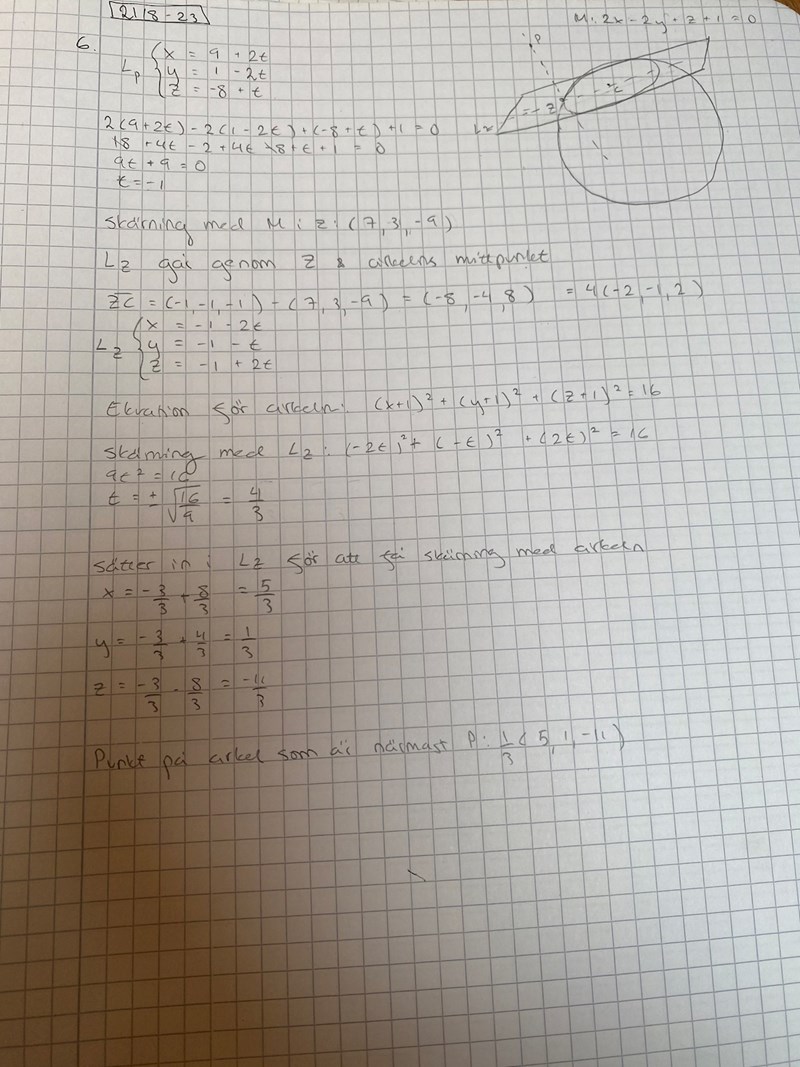 21/8-23
M: 2x - 2y + z + 1 = 0
6.
Lp { x = 9 + 2t
y = 1 - 2t
z = -8 + t
P
2(9+2t) - 2(1-2t) + (-8+t) + 1 = 0
18 + 4t - 2 + 4t - 8 + t + 1 = 0
9t + 9 = 0
t = -1
Skärning med M i z: (7, 3, -9)
Lz går genom Z & cirkelns mittpunkt
ZC = (-1, -1, -1) - (7, 3, -9) = (-8, -4, 8) = 4(-2, -1, 2)
Lz { x = -1 - 2t
y = -1 - t
z = -1 + 2t
Ekvation för cirkeln: (x+1)² + (y+1)² + (z+1)² = 16
Skärning med Lz: (-2t)² + (-t)² + (2t)² = 16
9t² = 16
t = ± √16/√9 = 4/3
Sätter in i Lz för att få skärning med cirkeln
x = -3/3 + 8/3 = 5/3
y = -3/3 + 4/3 = 1/3
z = -3/3 - 8/3 = -11/3
Punkt på cirkel som är närmast P: 1/3 (5, 1, -11)